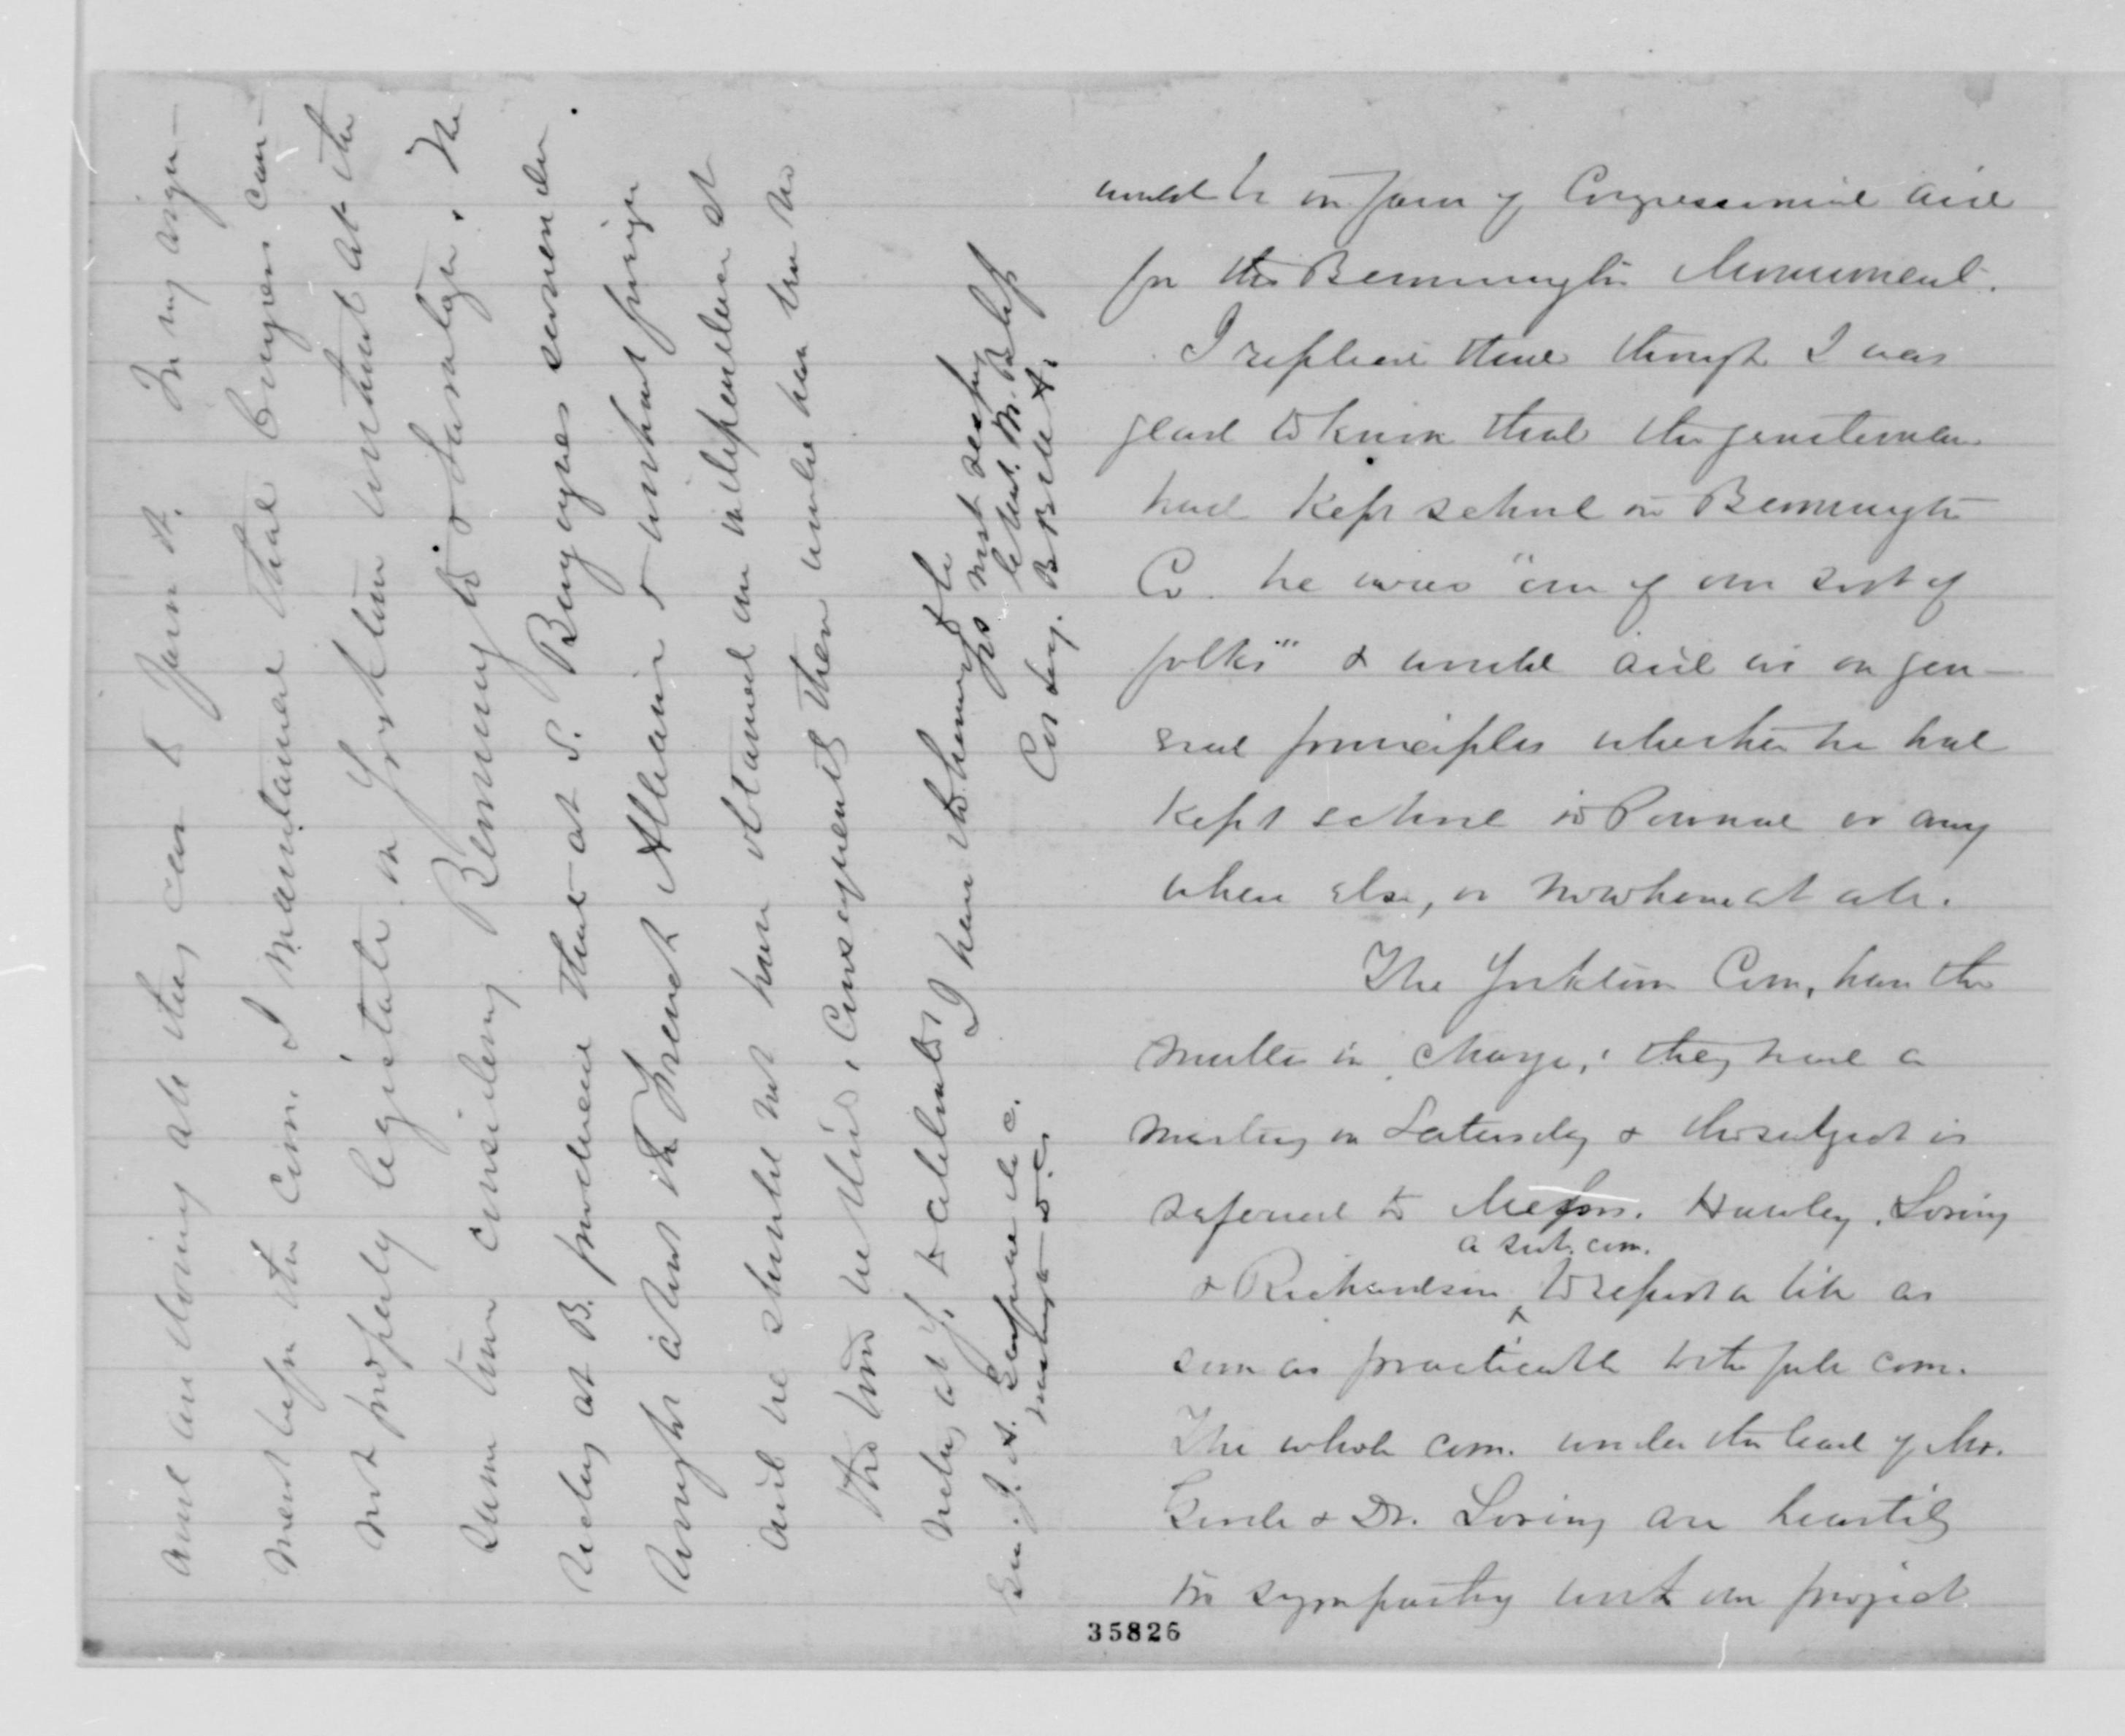 would be in favor of Congressional aid
for the Bennington Monument.
I replied that though I was
glad to know that the gentleman
had kept school in Bennington
Co. he was "one of our sort of
folks" & would aid us on gen-
eral principles whether he had
kept school in Pownal or any
where else, or nowhere at all.
The Yorktown Com, have the
matter in charge; they had a
meeting on Saturday & the subject is
referred to Messrs. Hawley, Loring
a sub. com.
& Richardson ^ to report a bill as
soon as practicable to the full com.
The whole com. under the lead of Mr.
Goode & Dr. Loring are heartily
in sympathy with our project
35826
and are doing all they can to favor it. In my argu-
ment before the com. I maintained that Congress can-
not properly legislate in Yorktown monument at the
same time considering Bennington & Saratoga. The
victory at B. produced that at S. Burgoynes surrender
brought about the French Alliance & without foreign
aid we should not have obtained our independence at
the time we did. Consequently there would have been no
victory at Y. to celebrate. I have the honor to be
yrs most respy
Chas. M. Bliss
Cor. Secy. B B M A.
Gen. J. A. Garfield M. C.
Washington D. C.